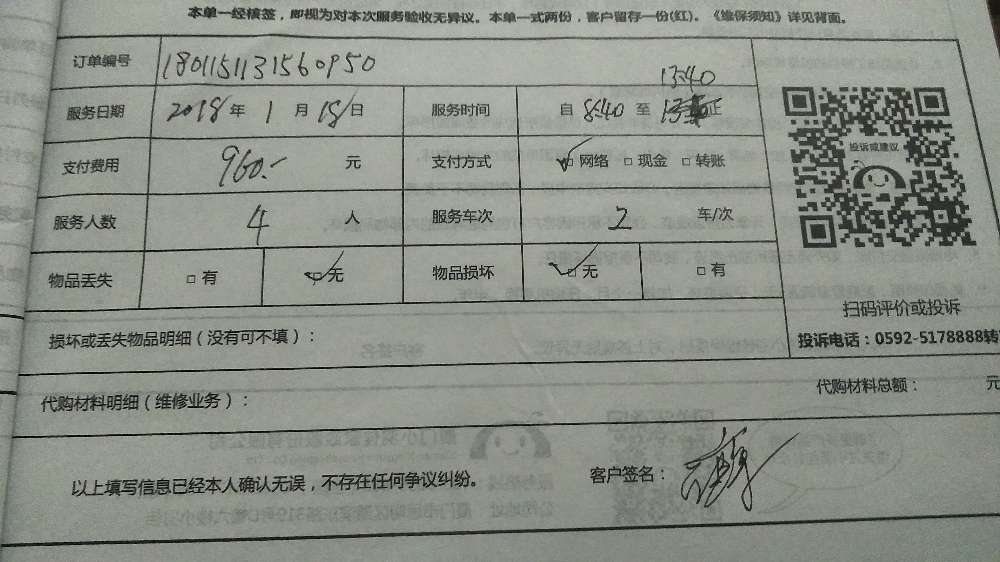 本单一经核签，即视为对本次服务验收无异议。本单一式两份，客户留存一份(红)。《维保须知》详见背面。
订单编号 1801151131560950
13:40
服务日期 2018年1月18日 服务时间 自8:40至
支付费用 960.- 元 支付方式 ☑网络 □现金 □转账
投诉或建议
服务人数 4 人 服务车次 2 车/次
物品丢失 □有 ☑无 物品损坏 ☑无 □有
扫码评价或投诉
损坏或丢失物品明细（没有可不填）： 投诉电话：0592-5178888转
代购材料明细（维修业务）： 代购材料总额： 元
以上填写信息已经本人确认无误，不存在任何争议纠纷。 客户签名：